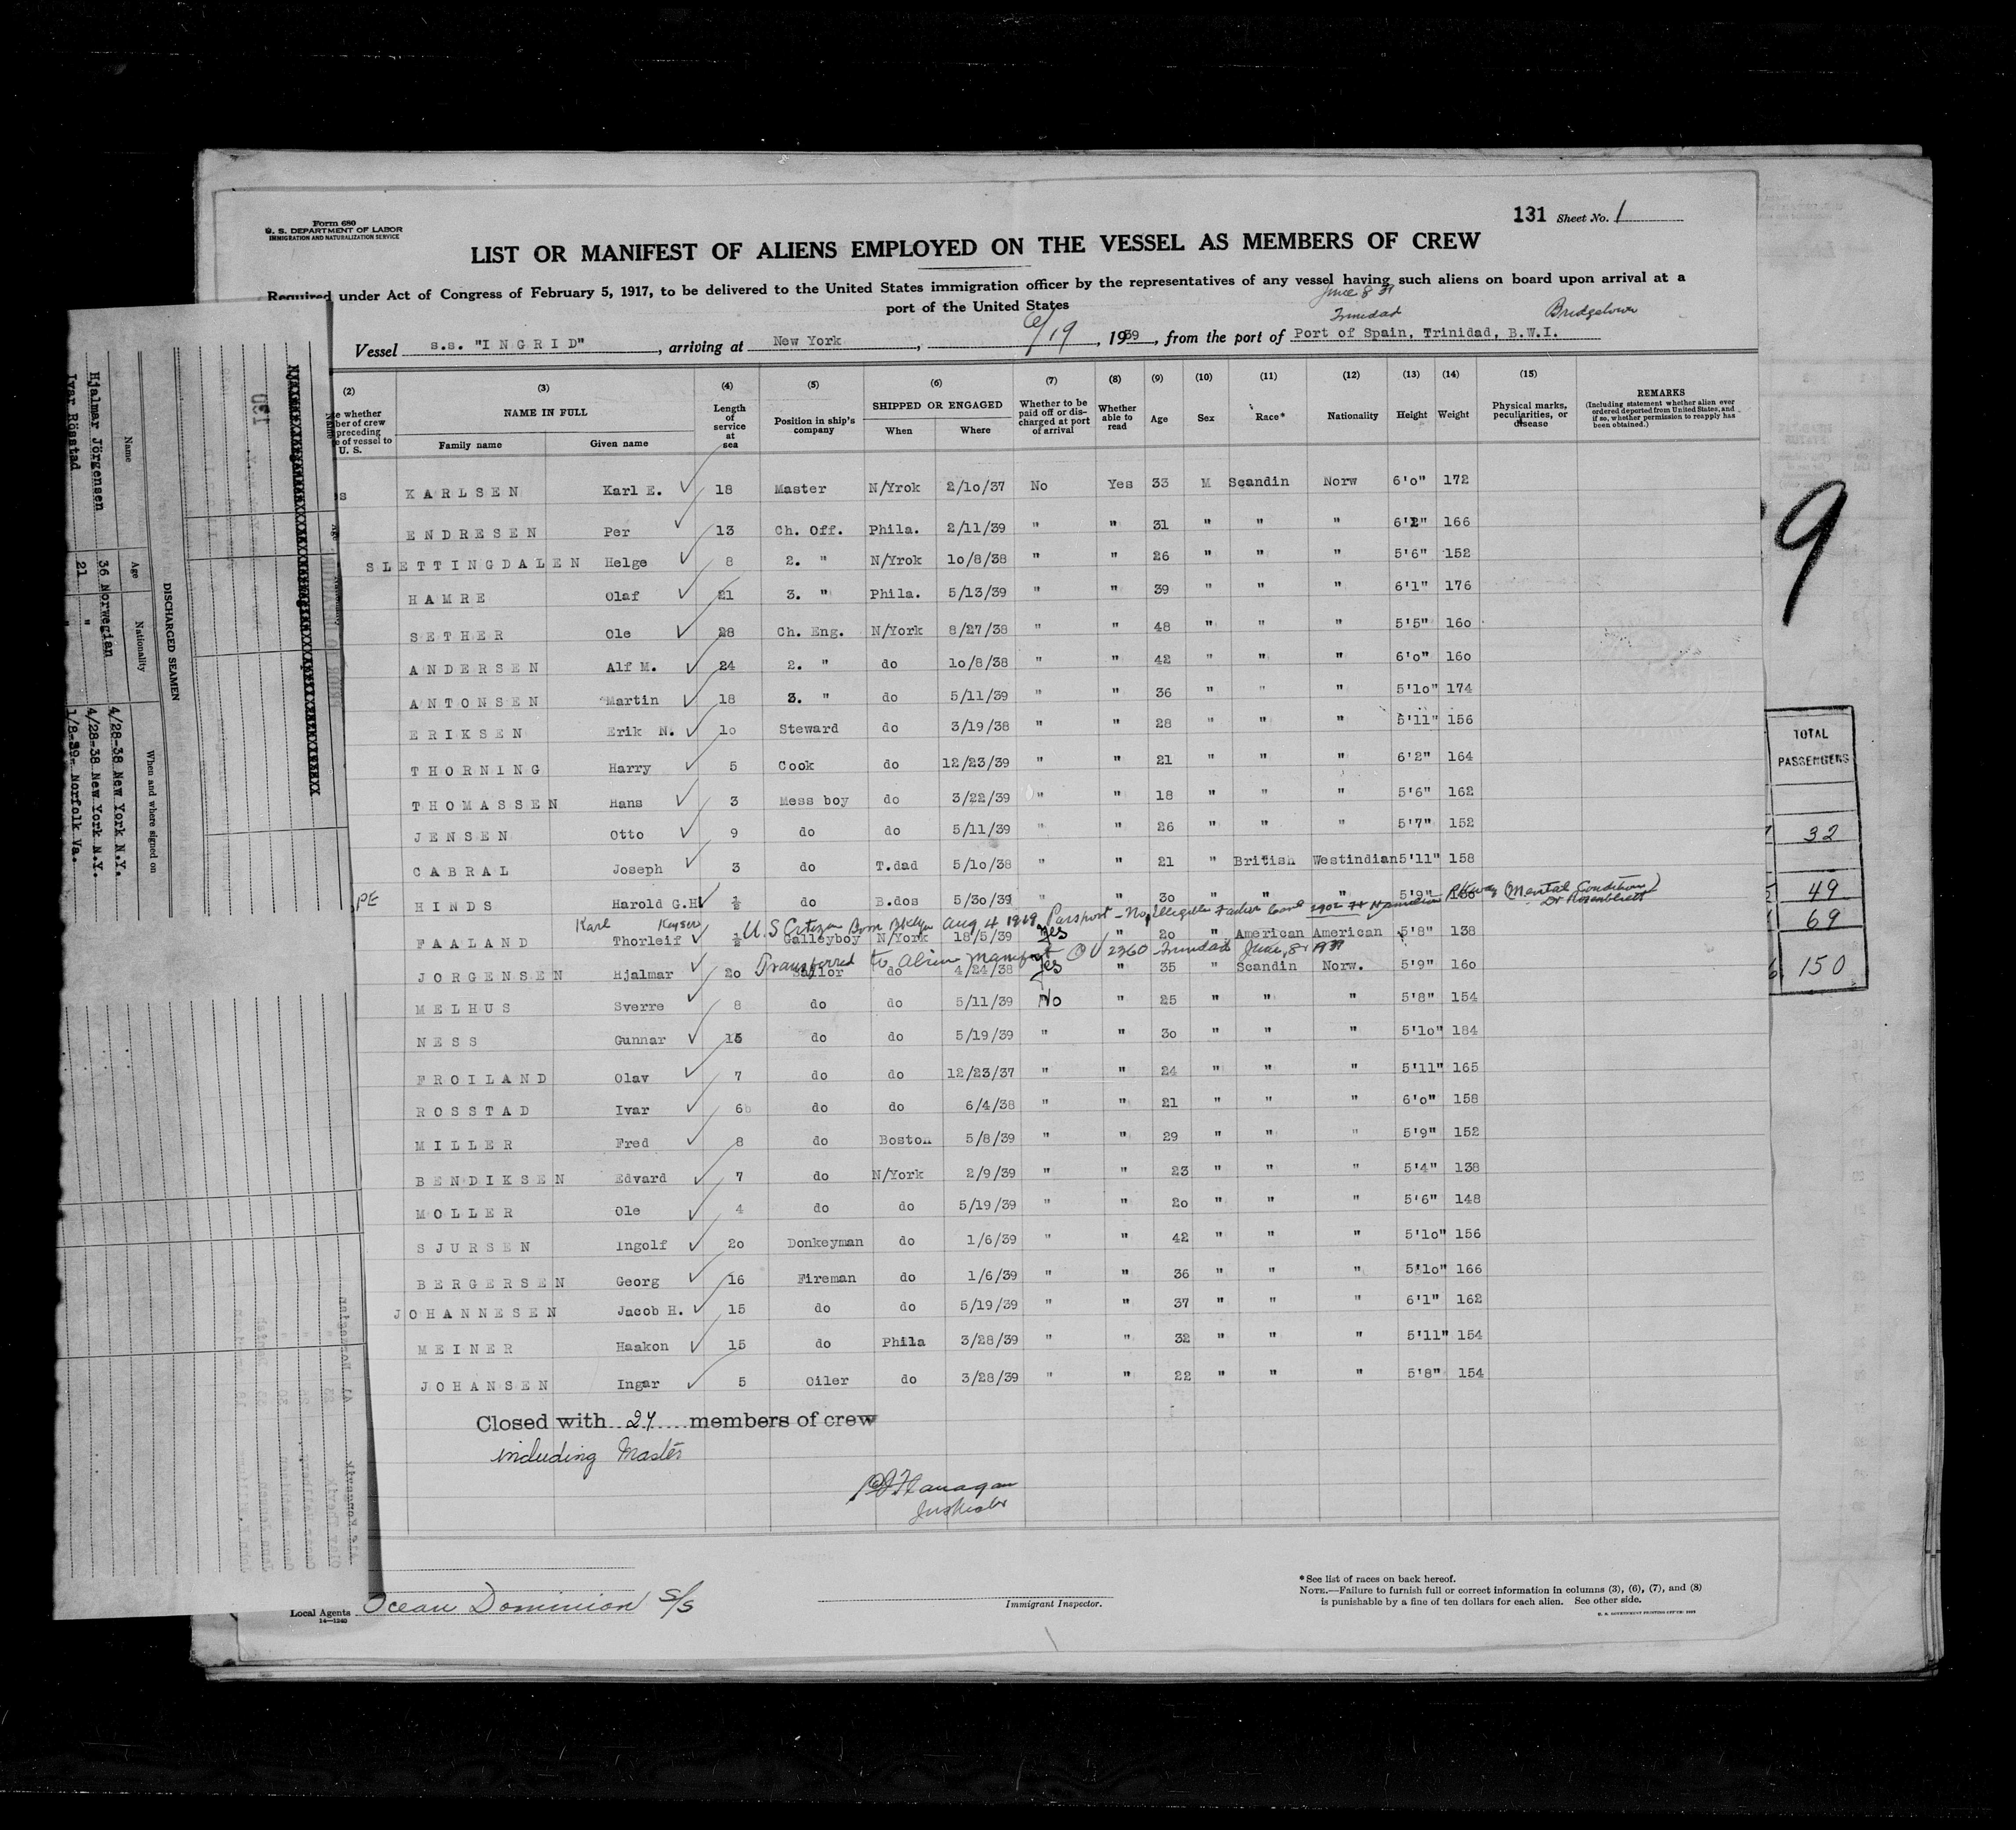 Form 680
U. S. DEPARTMENT OF LABOR
IMMIGRATION AND NATURALIZATION SERVICE
131 Sheet No. 1
LIST OR MANIFEST OF ALIENS EMPLOYED ON THE VESSEL AS MEMBERS OF CREW
Required under Act of Congress of February 5, 1917, to be delivered to the United States immigration officer by the representatives of any vessel having such aliens on board upon arrival at a
port of the United States
June 8 39
Trinidad Bridgetown
Vessel s.s. "INGRID", arriving at New York, 6/19, 1939, from the port of Port of Spain, Trinidad, B.W.I.
(2) (3) (4) (5) (6) (7) (8) (9) (10) (11) (12) (13) (14) (15)
whether
ber of crew
preceding
of vessel to
U. S.
NAME IN FULL
Family name Given name
Length of service at sea
Position in ship's company
SHIPPED OR ENGAGED
When Where
Whether to be paid off or discharged at port of arrival
Whether able to read
Age Sex Race* Nationality Height Weight
Physical marks, peculiarities, or disease
REMARKS
(Including statement whether alien ever ordered deported from United States, and if so, whether permission to reapply has been obtained.)
s KARLSEN Karl E. 18 Master N/Yrok 2/10/37 No Yes 33 M Scandin Norw 6'0" 172
ENDRESEN Per 13 Ch. Off. Phila. 2/11/39 " " 31 " " " 6'2" 166
SLETTINGDALEN Helge 8 2. " N/Yrok 10/8/38 " " 26 " " " 5'6" 152
HAMRE Olaf 21 3. " Phila. 5/13/39 " " 39 " " " 6'1" 176
SETHER Ole 28 Ch. Eng. N/York 8/27/38 " " 48 " " " 5'5" 160
ANDERSEN Alf M. 24 2. " do 10/8/38 " " 42 " " " 6'0" 160
ANTONSEN Martin 18 3. " do 5/11/39 " " 36 " " " 5'10" 174
ERIKSEN Erik N. 10 Steward do 3/19/38 " " 28 " " " 5'11" 156
THORNING Harry 5 Cook do 12/23/39 " " 21 " " " 6'2" 164
THOMASSEN Hans 3 Mess boy do 3/22/39 " " 18 " " " 5'6" 162
JENSEN Otto 9 do do 5/11/39 " " 26 " " " 5'7" 152
CABRAL Joseph 3 do T.dad 5/10/38 " " 21 " British Westindian 5'11" 158
PE HINDS Harold G.H. ½ do B.dos 5/30/39 " " 30 " " " 5'9" (Mental Condition)
Dr Rosenblatt
Karl Kayser U.S Citizen Born Bklyn Aug 4 1919 Passport - No
FAALAND Thorleif ½ Galleyboy N/York 18/5/39 Yes " 20 " American American 5'8" 138
Transferred to Alien Manifest Trinidad June, 8, 1939
JORGENSEN Hjalmar 20 Sailor do 4/24/38 Yes " 35 " Scandin Norw. 5'9" 160
MELHUS Sverre 8 do do 5/11/39 No " 25 " " " 5'8" 154
NESS Gunnar 15 do do 5/19/39 " " 30 " " " 5'10" 184
FROILAND Olav 7 do do 12/23/37 " " 24 " " " 5'11" 165
ROSSTAD Ivar 6 do do 6/4/38 " " 21 " " " 6'0" 158
MILLER Fred 8 do Boston 5/8/39 " " 29 " " " 5'9" 152
BENDIKSEN Edvard 7 do N/York 2/9/39 " " 23 " " " 5'4" 138
MOLLER Ole 4 do do 5/19/39 " " 20 " " " 5'6" 148
SJURSEN Ingolf 20 Donkeyman do 1/6/39 " " 42 " " " 5'10" 156
BERGERSEN Georg 16 Fireman do 1/6/39 " " 36 " " " 5'10" 166
JOHANNESEN Jacob H. 15 do do 5/19/39 " " 37 " " " 6'1" 162
MEINER Haakon 15 do Phila 3/28/39 " " 32 " " " 5'11" 154
JOHANSEN Ingar 5 Oiler do 3/28/39 " " 22 " " " 5'8" 154
Closed with 27 members of crew
including Master
Flanagan
Inspector
Local Agents Ocean Dominion S/S
14—1240
Immigrant Inspector.
*See list of races on back hereof.
NOTE.—Failure to furnish full or correct information in columns (3), (6), (7), and (8)
is punishable by a fine of ten dollars for each alien. See other side.
130
DISCHARGED SEAMEN
Name Age Nationality When and where signed on
4/28-38 New York N.Y.
Hjalmar Jörgensen 36 Norwegian 4/28-38 New York N.Y.
Ivar Rösstad 21 " 1/8-39- Norfolk Va.
9
TOTAL
PASSENGERS
32
49
69
150